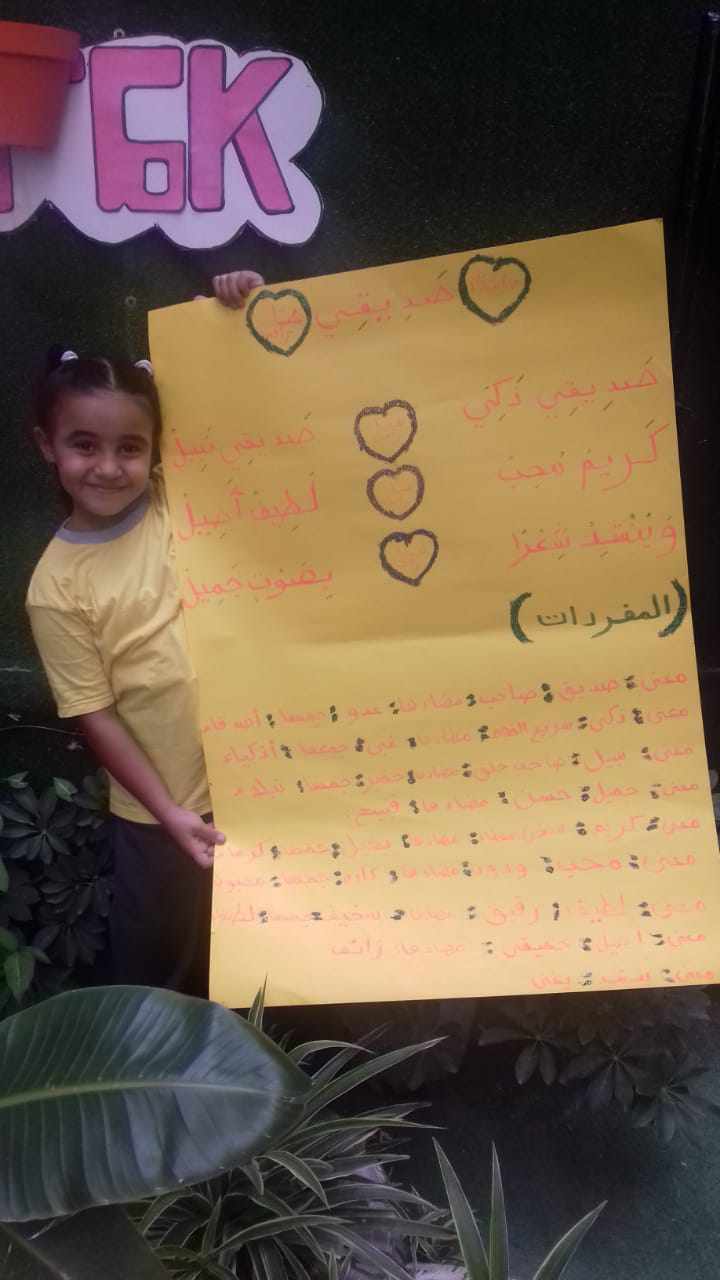 БК
صَديقِي
صَدِيقِي ذَكِي صَديقِي نَبِيلْ
كَرِيم مُحِب لَطِيف أَصِيلْ
وَيُنْشِدْ شِعْرًا بِصَوْتٍ جَمِيلْ
(المفردات)
معنى: صديق: صاحب: مضادها: عدو: جمعها: أصدقاء
معنى: ذكي: سريع الفهم: مضادها: غبى: جمعها: أذكياء
معنى: نبيل: صاحب خلق: مضادها: حقير: جمعها: نبلاء
معنى: جميل: حسن: مضادها: قبيح
معنى: كريم: مضادها: بخيل: جمعها: كرماء
معنى: محب: ودود: مضادها: كاره: جمعها: محبون
معنى: لطيف: رقيق: مضادها: سخيف: جمعها:
معنى: أصيل: حقيقي: مضادها: زائف
معنى: ينشد: يغنى